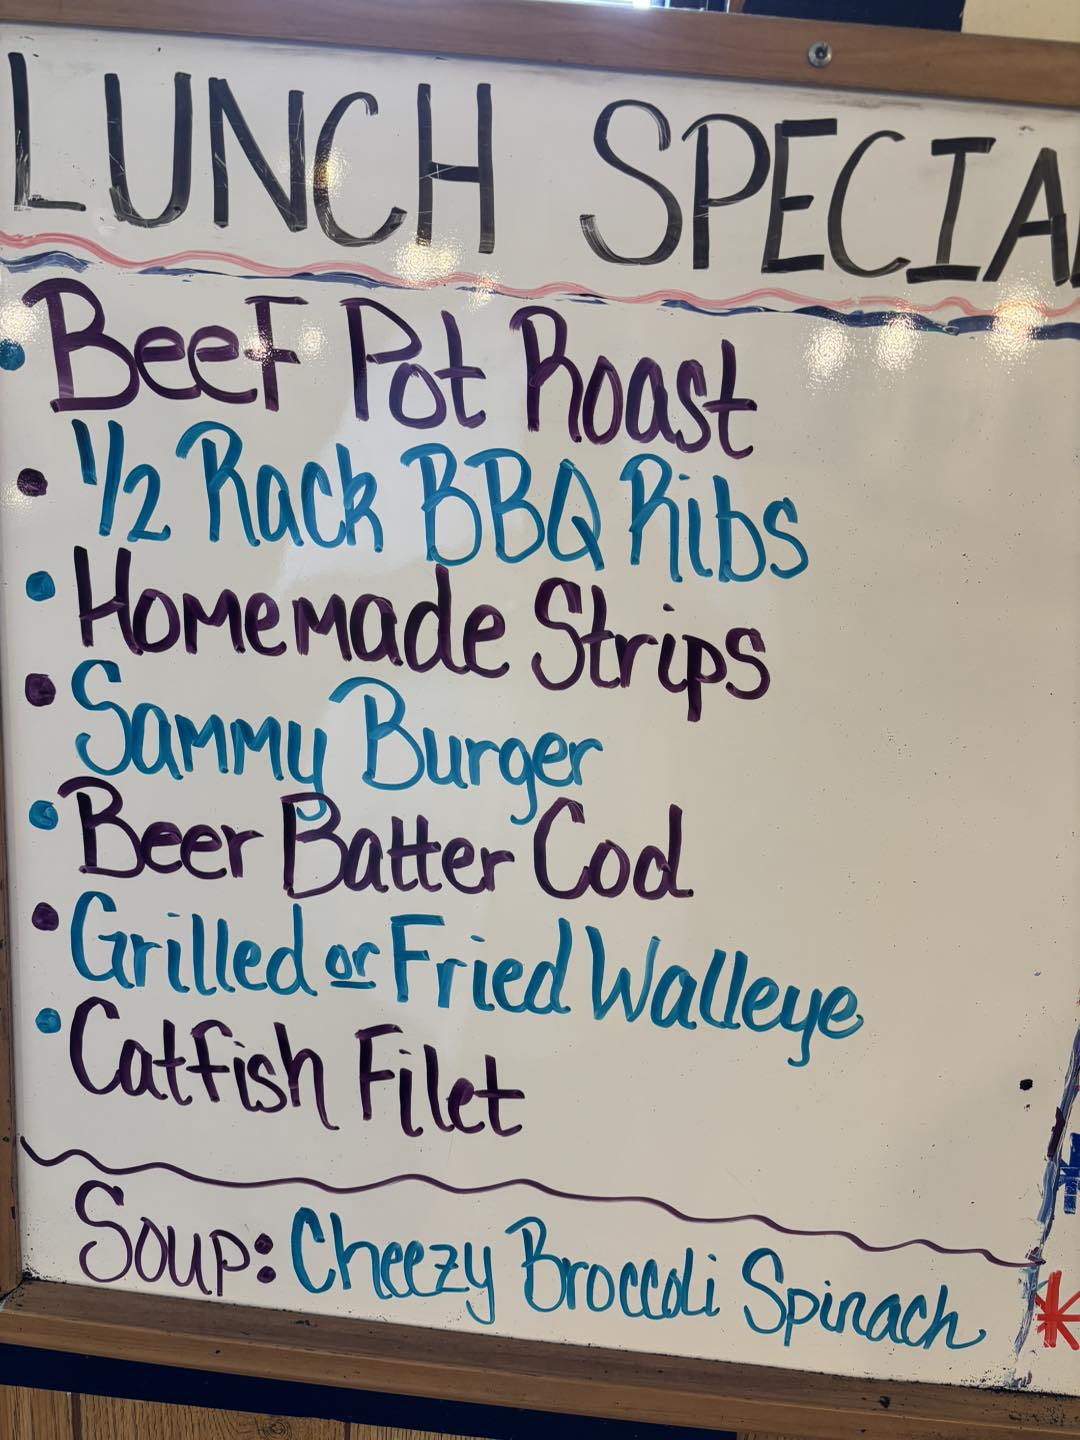 LUNCH SPECIA
• Beef Pot Roast
• 1/2 Rack BBQ Ribs
• Homemade Strips
• Sammy Burger
• Beer Batter Cod
• Grilled or Fried Walleye
• Catfish Filet
Soup: Cheezy Broccoli Spinach